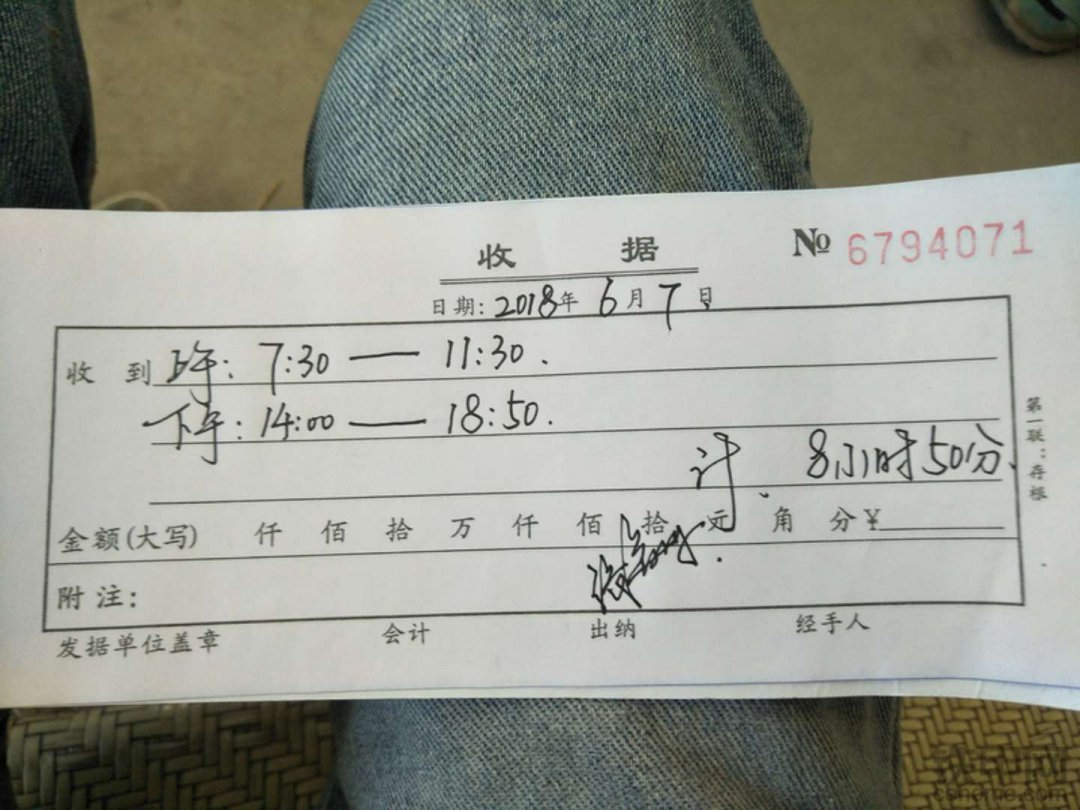 收 据
№ 6794071
日期: 2018年 6月 7日
收 到 上午: 7:30 — 11:30.
下午: 14:00 — 18:50.
计、8小时50分.
金额(大写) 仟 佰 拾 万 仟 佰 拾 元 角 分¥
附 注:
发据单位盖章 会计 出纳 经手人
第一联:存根